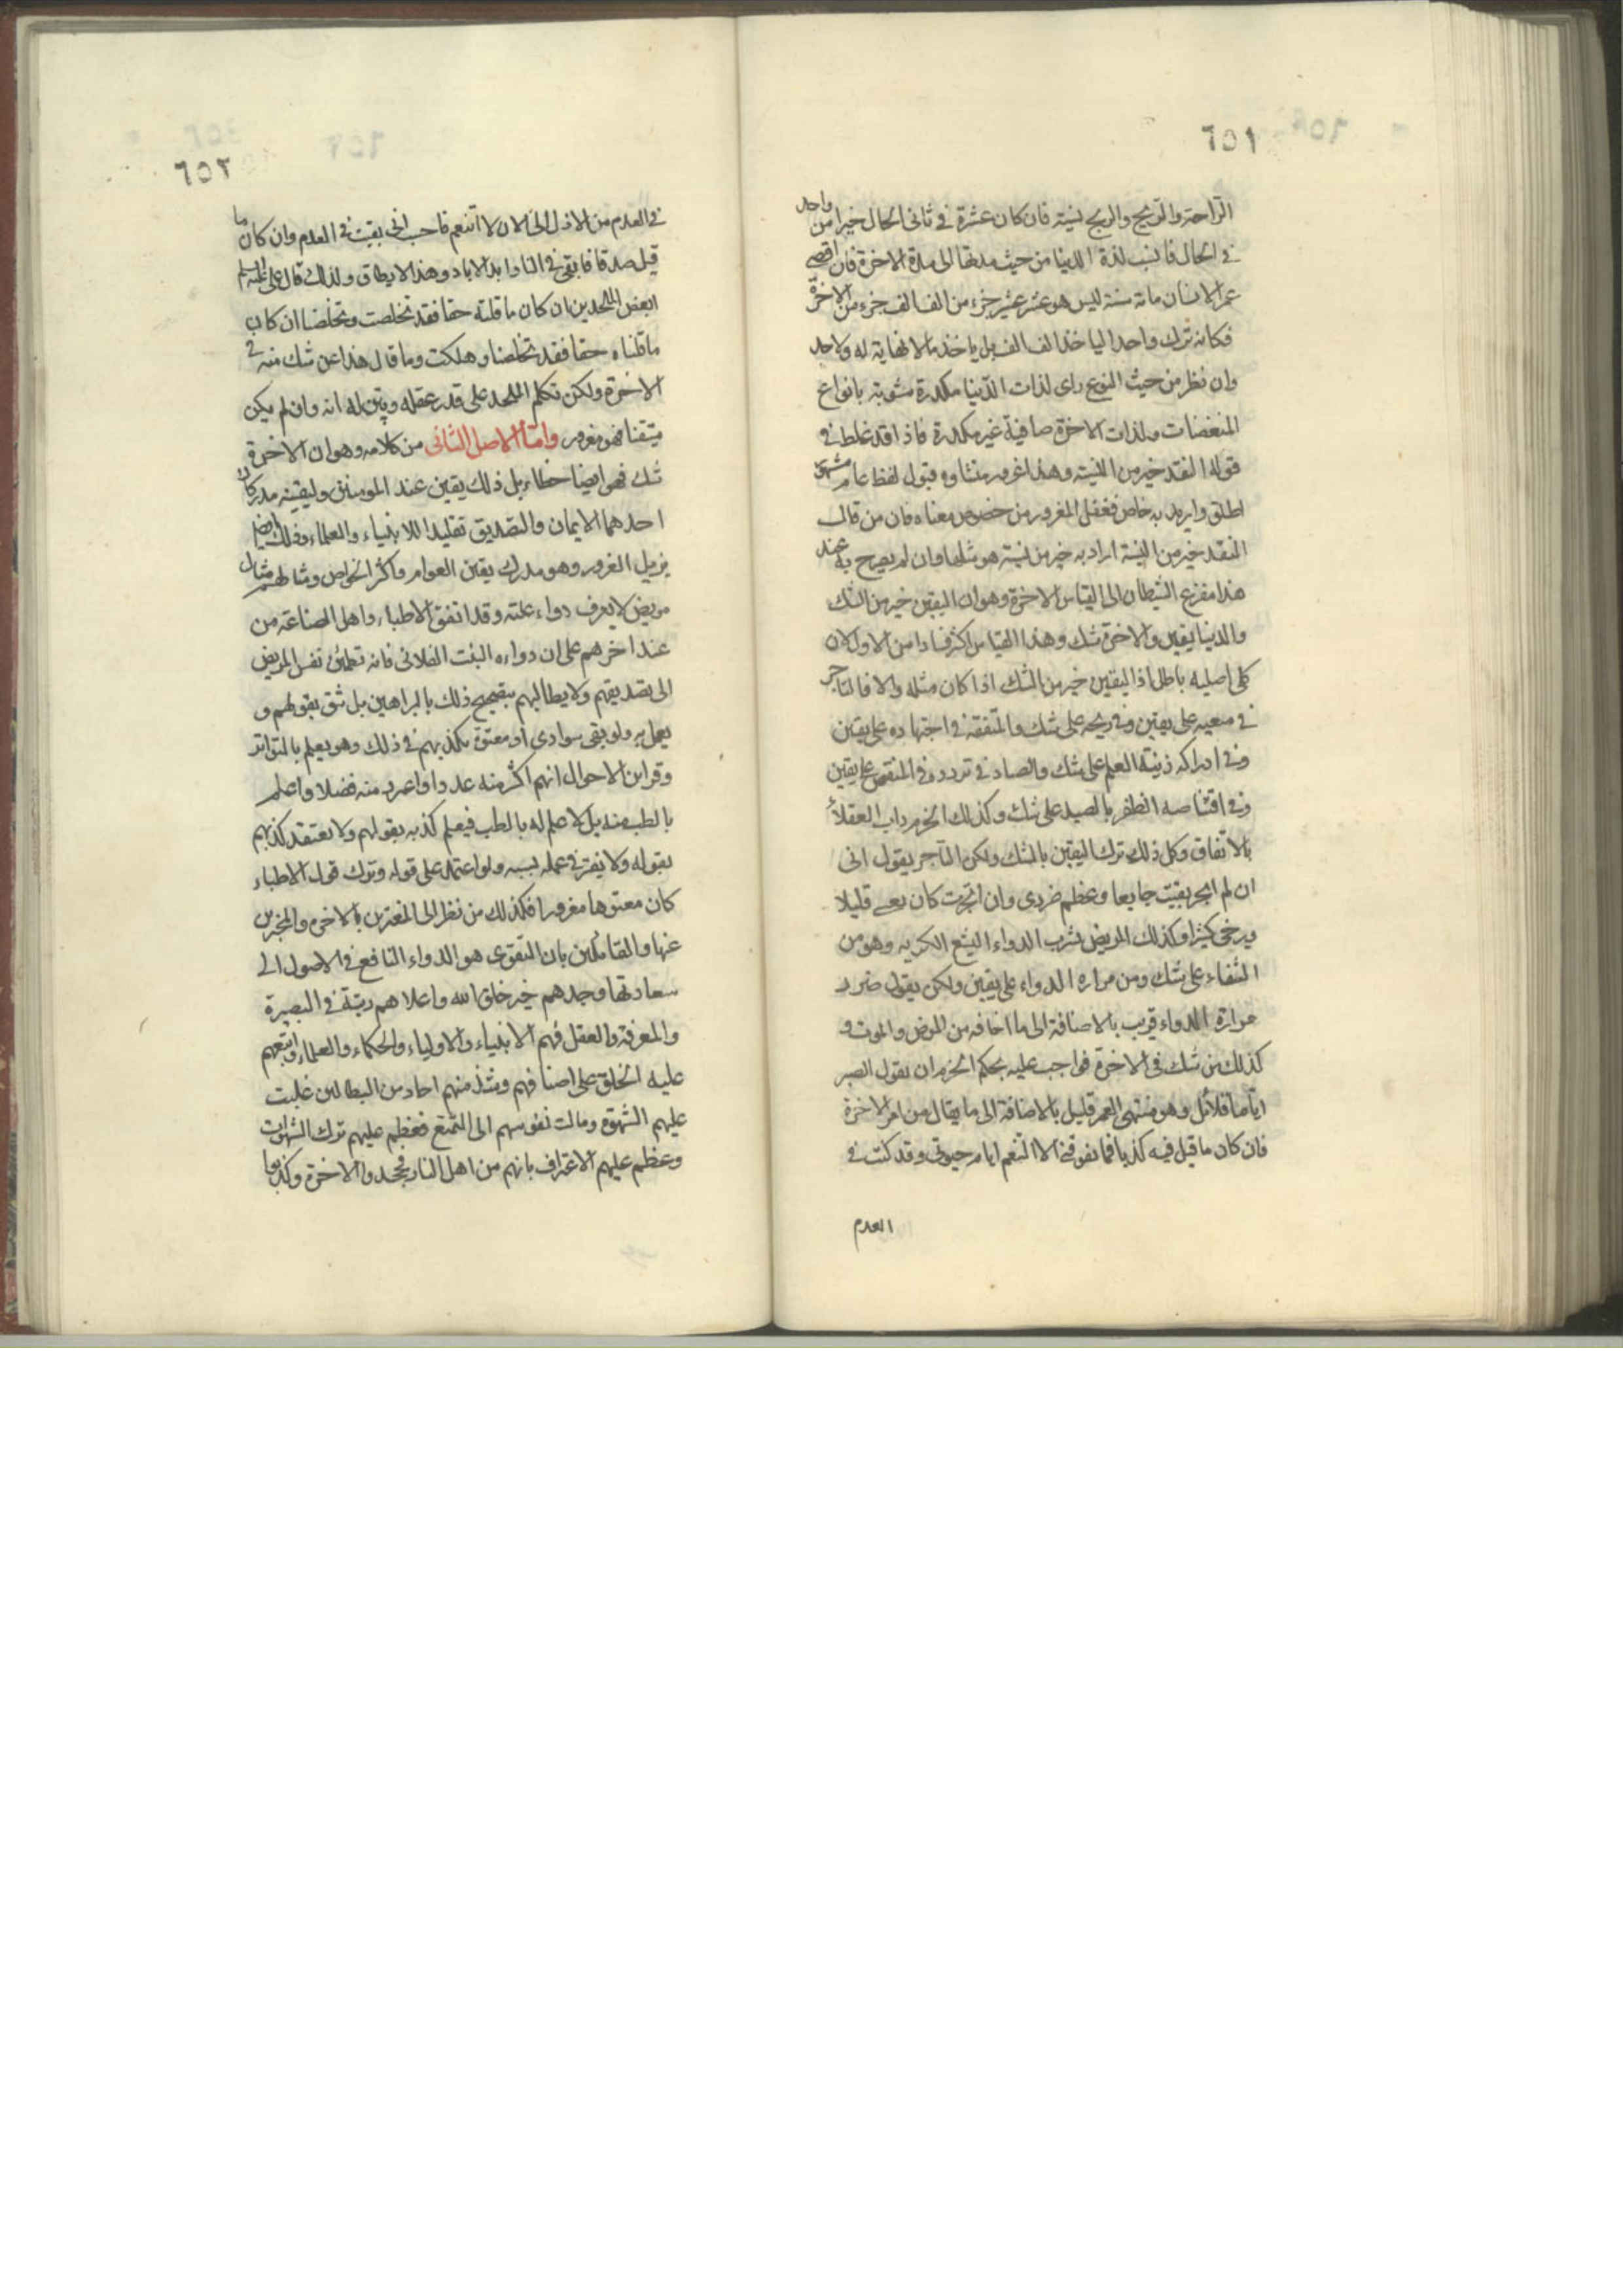 ٦٥١
الراحة والربح والربح نسية فان كان عشرة في ثاني الحال خيرا من واحد
في الحال فانسب لذة الدنيا من حيث مدتها الى مدة الاخرة فان اقصى
عمر الانسان مائة سنة ليس هو عشر عشير جزء من الف الف جزء من الاخرة
فكانه ترك واحدا لياخذ الف الف بل ياخذ ما لا نهاية له ولا حد
وان نظر من حيث النوع راى لذات الدنيا مكدرة مشوبة بانواع
المنغصات ولذات الاخرة صافية غير مكدرة فاذا قد غلط في
قوله النقد خير من النسية وهذا غرور منشاوه قبول لفظ عام مشهور
اطلق واريد به خاص فغفل المغرور من خصوص معناه فان من قال
النقد خير من النسية اراد به خير من نسية هو مثلها وان لم يصرح به عند
هذا مفزع الشيطان الى القياس الاخرة وهو ان اليقين خير من الشك
والدنيا يقين والاخرة شك وهذا القياس اكثر فسادا من الاول لان
كلى اصليه باطل اذ اليقين خير من الشك اذا كان مثله والا فالتاجر
في سعيه على يقين وفي ربحه على شك والمتفقه في اجتهاده على يقين
وفي ادراكه زينة العلم على شك والصاد في تردده في المنقص على يقين
وفي اقتناصه الظفر بالصيد على شك وكذلك الحزم داب العقلاء
بالاتفاق وكل ذلك ترك اليقين بالشك ولكن التاجر يقول اني
ان لم اتجر بقيت جايعا وعظم ضرري وان اتجرت كان تعبي قليلا
وربحي كثيرا وكذلك المريض يشرب الدواء البشع الكريه وهو من
الشفاء على شك ومن مرارة الدواء على يقين ولكن يقول ضرر
مرارة الدواء قريب بالاضافة الى ما اخافه من المرض والموت و
كذلك من شك في الاخرة فواجب عليه بحكم الحزم ان يقول الصبر
اياما قلائل وهو منتهى العمر قليل بالاضافة الى ما يقال من امر الاخرة
فان كان ما قيل فيه كذبا فما يفوتني الا التنعم ايام حيوتي وقد كنت في
العدم
٦٥٢
في العدم من الازل الى الان لا اتنعم فاحسب اني بقيت في العدم وان كان ما
قيل صدقا فابقى في النار ابد الاباد وهذا لا يطاق ولذلك قال علي عليه السلم
لبعض الملحدين ان كان ما قلته حقا فقد تخلصت وتخلصنا ان كان
ما قلناه حقا فقد تخلصنا وهلكت وما قال هذا عن شك منه في
الاخرة ولكن تكلم الملحد على قدر عقله وبين له انه وان لم يكن
متيقنا فهو مغرور واما الاصل الثانى من كلامه وهو ان الاخرة
شك فهو ايضا خطاء بل ذلك يقين عند المومنين وليقينه مدركان
احدهما الايمان والتصديق تقليدا للانبياء والعلماء وذلك ايضا
يزيل الغرور وهو مدرك يقين العوام واكثر الخواص ومثالهم مثال
مريض لا يعرف دواء علته وقد اتفق الاطباء واهل الصناعة من
عند اخرهم على ان دواءه النبت الفلانى فانه تطمئن نفس المريض
الى تصديقهم ولا يطالبهم بتصحيح ذلك بالبراهين بل يثق بقولهم و
يعمل به ولو بقى سوادى او معتوه يكذبهم في ذلك وهو يعلم بالتواتر
وقراين الاحوال انهم اكثر منه عددا واغزر منه فضلا واعلم
بالطب منه بل لا علم له بالطب فيعلم كذبه بقولهم ولا يعتقد كذبهم
بقوله ولا يغتر في عمله بسببه ولو اعتمد على قوله وترك قول الاطباء
كان معتوها مغرورا فكذلك من نظر الى المغترين بالاخرة والمخبرين
عنها والقائلين بان التقوى هو الدواء النافع في الاصول الى
سعادتها وجدهم خير خلق الله واعلاهم رتبة في البصيرة
والمعرفة والعقل فهم الانبياء والاولياء والحكماء والعلماء واتبعهم
عليه الخلق على اصنافهم وشذ منهم احاد من البطالين غلبت
عليهم الشهوة ومالت نفوسهم الى التمتع فعظم عليهم ترك الشهوات
وعظم عليهم الاعتراف بانهم من اهل النار فجحدوا الاخرة وكذبوا